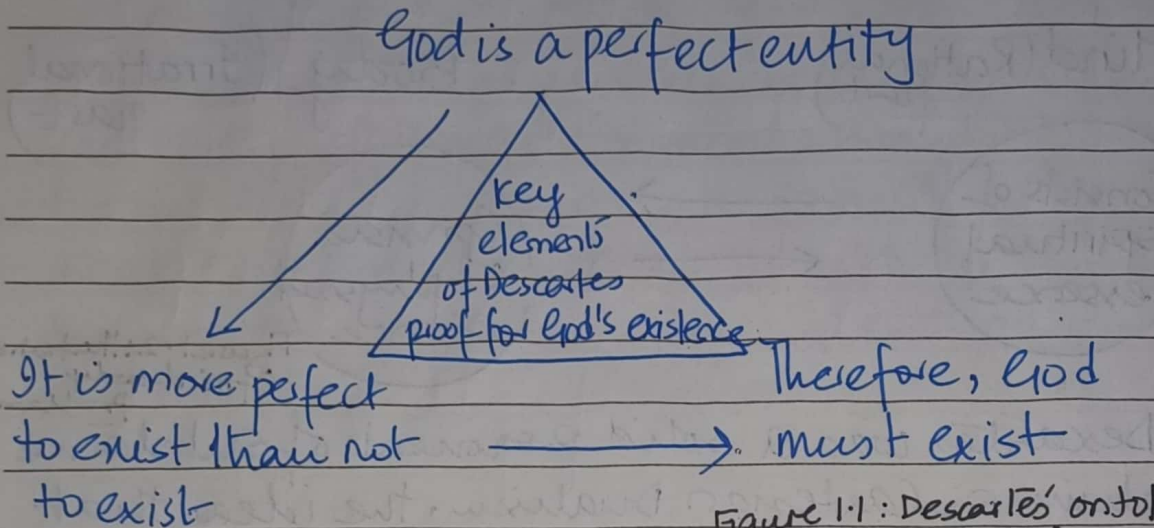 God is a perfect entity
key
elements
of Descartes
proof for God's existence
It is more perfect
to exist than not
to exist
Therefore, God
must exist
Figure 1.1: Descartes' ontol